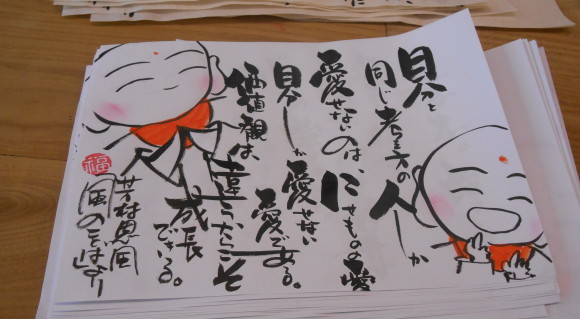 自分と
同じ考え方の人しか
愛せないのは、にせものの愛
自分しか愛せない
愛である。
価値観は、違うからこそ
成長できる。
福
芳村思風
風のことばより